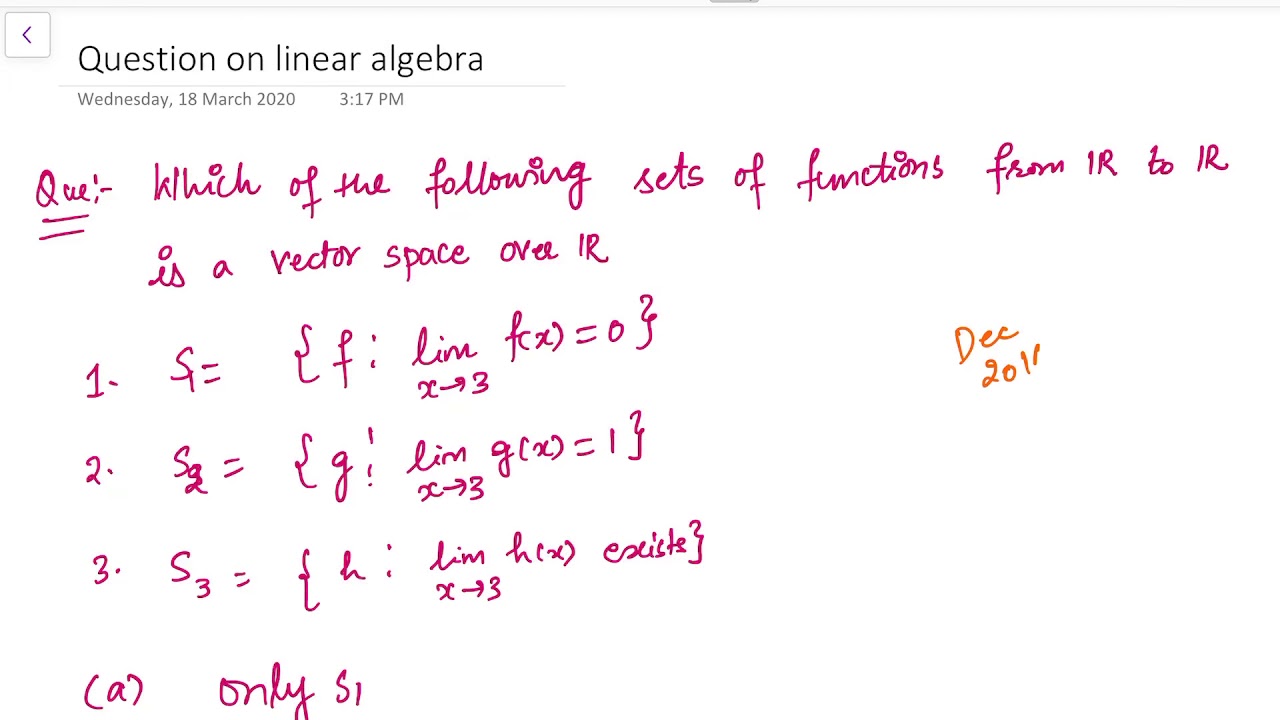 Question on linear algebra
Wednesday, 18 March 2020 3:17 PM
Que:- Which of the following sets of functions from IR to IR
is a vector space over IR
1. S1 = { f : lim x→3 f(x) = 0 }
Dec
2011
2. S2 = { g : lim x→3 g(x) = 1 }
3. S3 = { h : lim x→3 h(x) exists }
(a) only S1